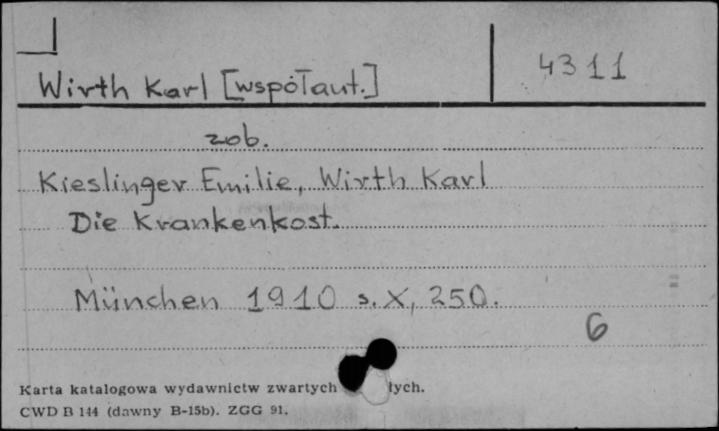 Wirth Karl [współaut.]
4311
zob.
Kieslinger Emilie, Wirth Karl
Die Krankenkost.
München 1910 s. X, 250.
6
Karta katalogowa wydawnictw zwartych łych.
CWD B 144 (dawny B-15b). ZGG 91.